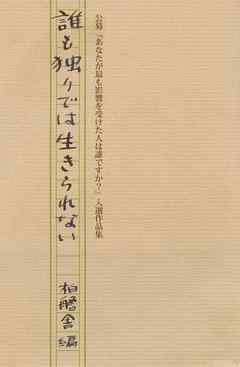 公募『あなたが最も影響を受けた人は誰ですか？』入選作品集
誰も独りでは生きられない
柏艪舎 編